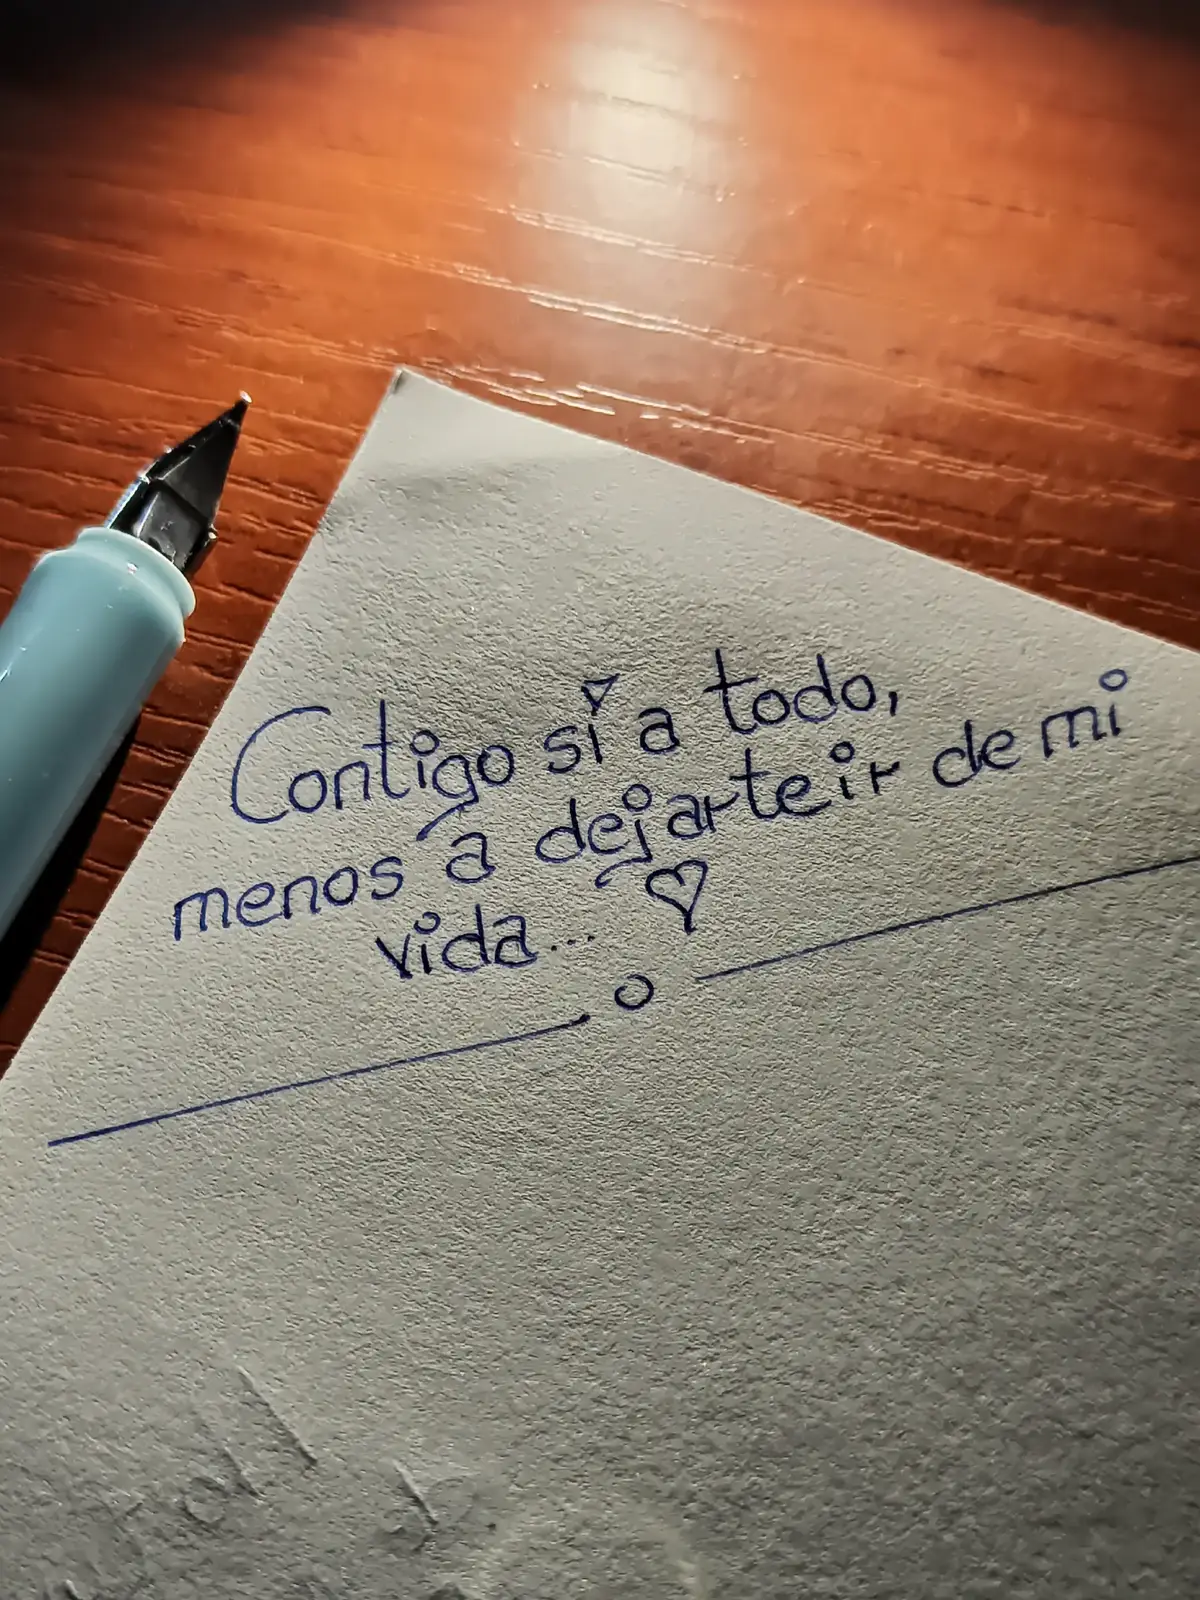 Contigo sí a todo,
menos a dejarte ir de mi
vida... ♡